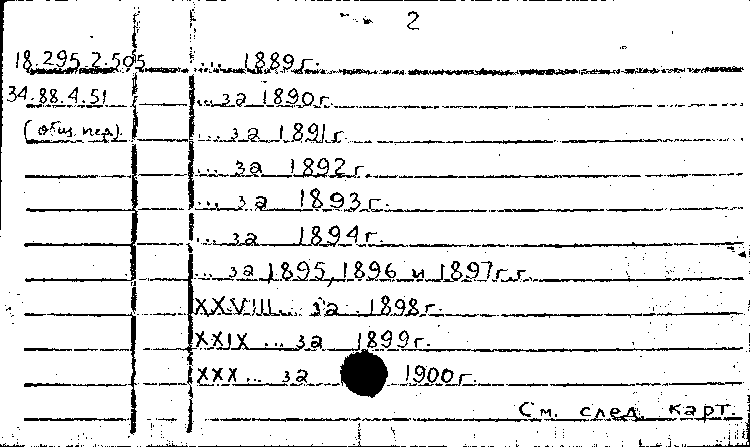 2
18.295.2.505 ... 1889г.
34.88.4.51 ...за 1890г.
(общ. пер). ...за 1891г.
... за 1892г.
... за 1893г.
... за 1894г.
... за 1895, 1896 и 1897г.г.
XXVIII... за 1898г.
XXIX ... за 1899г.
XXX... за 1900г.
См. след. карт.